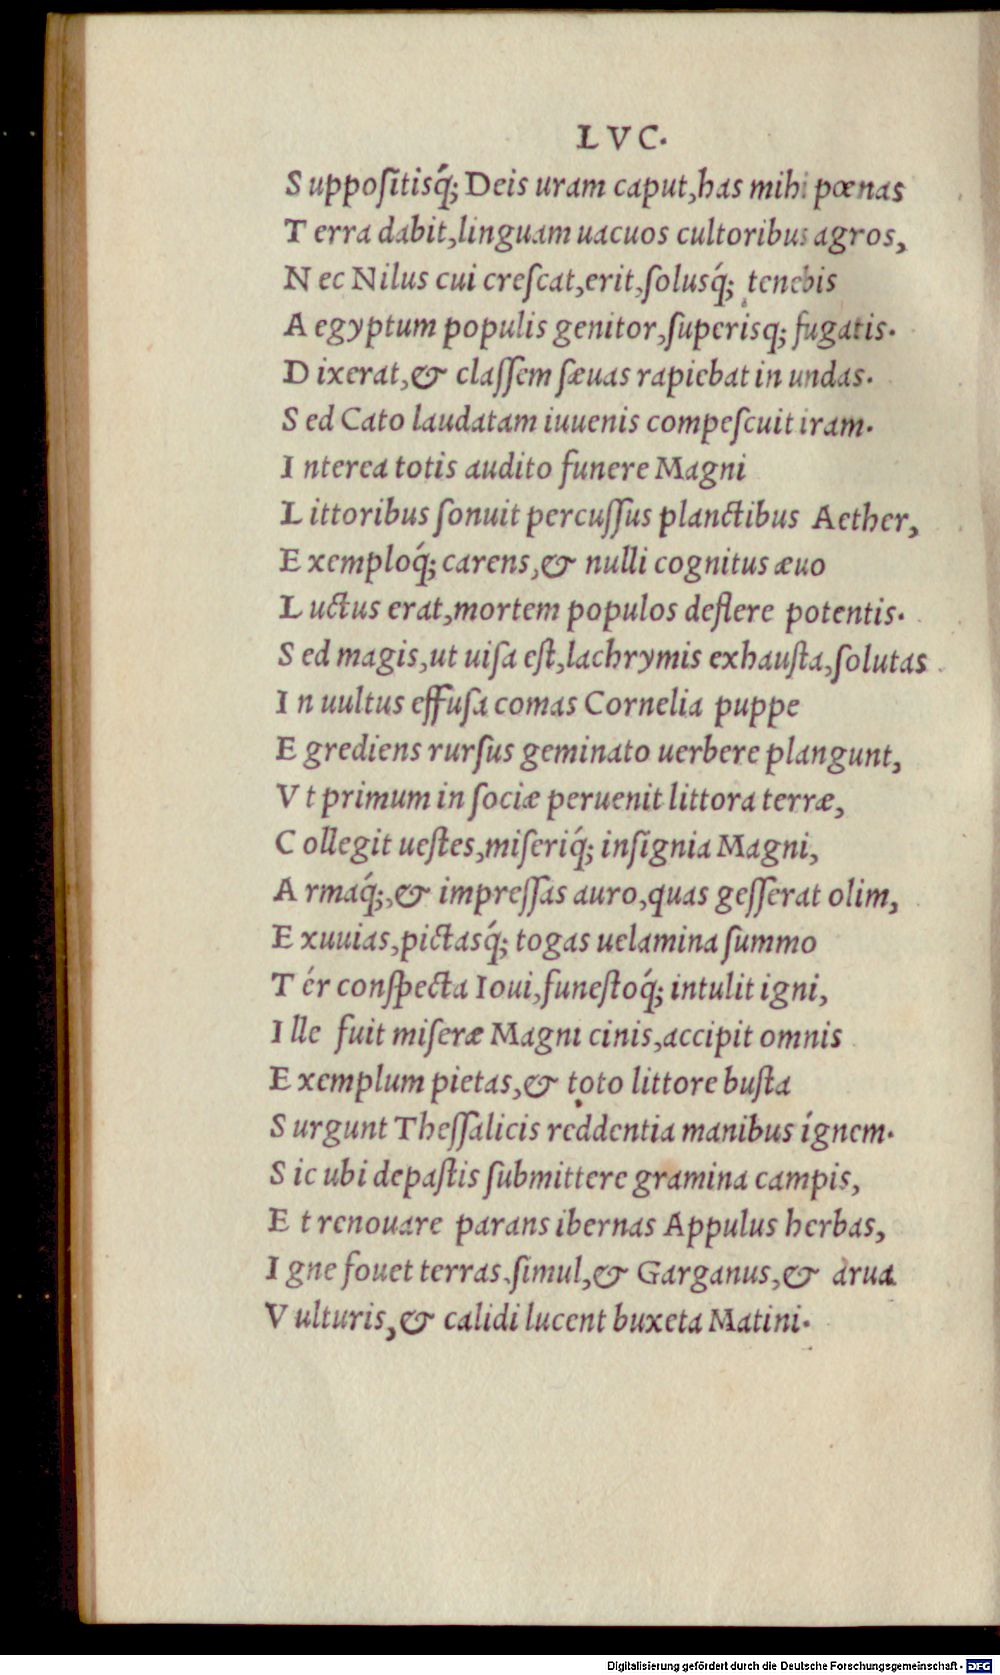 LVC.
S uppoſitisq́; Deis uram caput,has mihi pœnas
T erra dabit,linguam uacuos cultoribus agros,
N ec Nilus cui creſcat,erit,ſolusq́; tenebis
A egyptum populis genitor,ſuperisq; fugatis.
D ixerat,& claſſem ſæuas rapiebat in undas.
S ed Cato laudatam iuuenis compeſcuit iram.
I nterea totis audito funere Magni
L ittoribus ſonuit percuſſus planctibus Aether,
E xemploq́; carens,& nulli cognitus æuo
L uctus erat,mortem populos deflere potentis.
S ed magis,ut uiſa eſt,lachrymis exhauſta,ſolutas
I n uultus effuſa comas Cornelia puppe
E grediens rurſus geminato uerbere plangunt,
V t primum in ſociæ peruenit littora terræ,
C ollegit ueſtes,miſeriq́; inſignia Magni,
A rmaq́;,& impreſſas auro,quas geſſerat olim,
E xuuias,pictasq́; togas uelamina ſummo
T ér conſpecta Ioui,funeſtoq́; intulit igni,
I lle fuit miſeræ Magni cinis,accipit omnis
E xemplum pietas,& toto littore buſta
S urgunt Theſſalicis reddentia manibus ígnem.
S ic ubi depaſtis ſubmittere gramina campis,
E t renouare parans ibernas Appulus herbas,
I gne fouet terras.ſimul,& Garganus,& arua
V ulturis,& calidi lucent buxeta Matini.
Digitalisierung gefördert durch die Deutsche Forschungsgemeinschaft - DFG